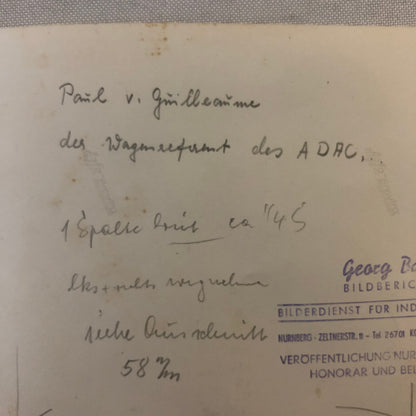 Paul v. Guilleaume
der Wagenreferent des ADAC...
1 Spalte breit ca 1/45
lks + rechts wegnehmen
siehe Ausschnitt
58 m/m
Georg
BILDBERIC
BILDERDIENST FÜR IND
NÜRNBERG - ZELTNERSTR. 11 - Tel 26701 K
VERÖFFENTLICHUNG NUR
HONORAR UND BEL